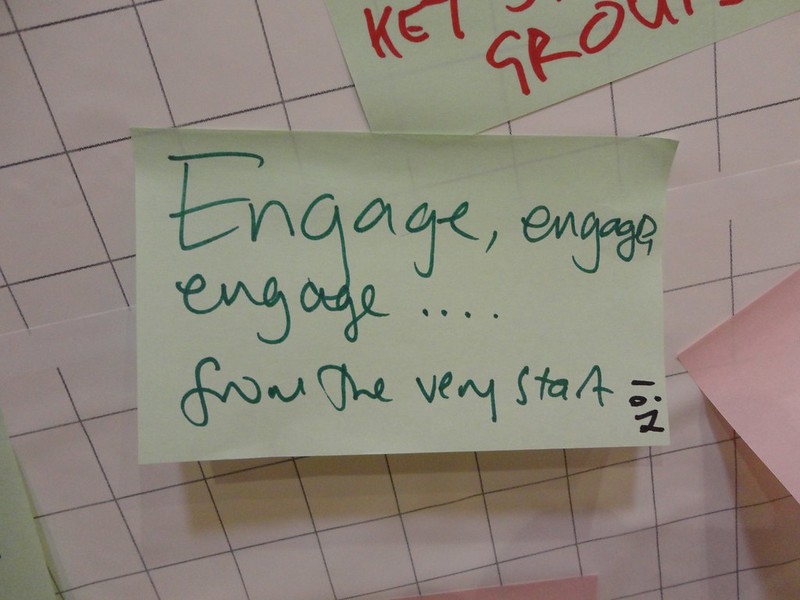 KEY
GROUP
Engage, engage,
engage ....
from the very start
10.2